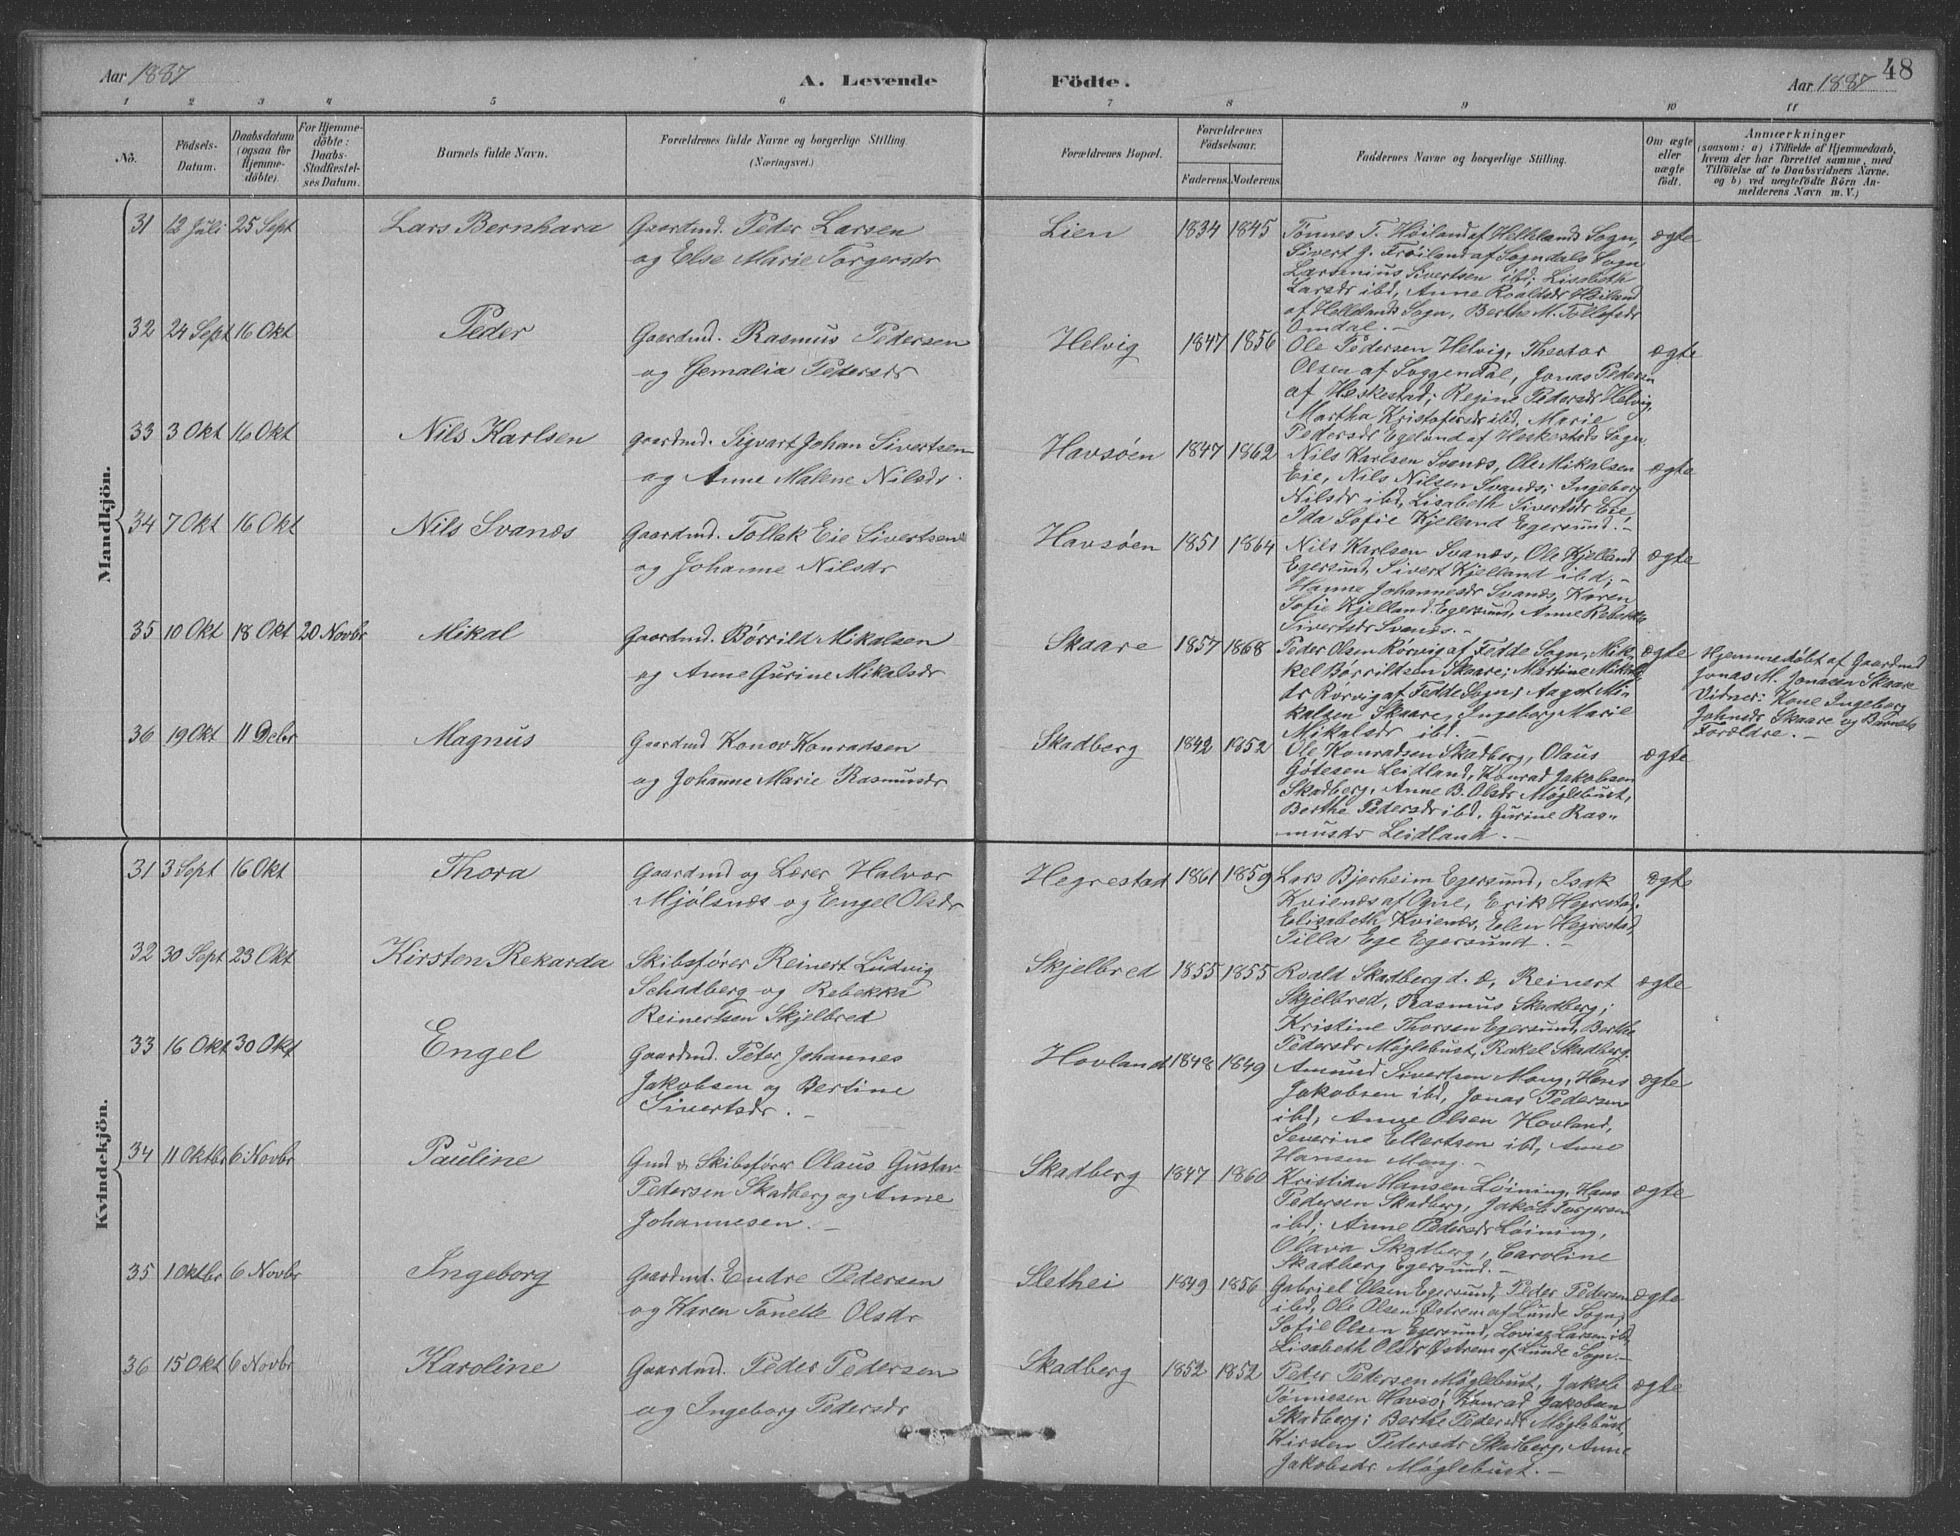 48
Aar 1887
A. Levende Födte.
Aar 1887
1 2 3 4 5 6 7 8 9 10 11
No.
Födsels-
Datum.
Daabsdatum
(ogsaa for
Hjemme-
döbte).
For Hjemme-
döbte:
Daabs-
Stadfæstel-
ses Datum.
Barnets fulde Navn.
Forældrenes fulde Navne og borgerlige Stilling.
(Næringsvei.)
Forældrenes Bopæl.
Forældrenes
Födselsaar.
Faderens. Moderens.
Faddernes Navne og borgerlige Stilling.
Om ægte
eller
uægte
födt.
Anmærkninger
(saasom: a) i Tilfælde af Hjemmedaab,
hvem der har forrettet samme, med
Tilföielse af to Daabsvidners Navne.
og b) ved uægtefödte Börn An-
melderens Navn m. V.)
Mandkjön.
31 12 Juli 25 Sept Lars Bernhard
Gaardmd. Peder Larsen
og Else Marie Torgersdr
Lien 1834 1845
Tönnes T. Höiland af Hellelands Sogn,
Sivert J. Fröiland af Sogndals Sogn
Larsenius Sivertsen ibd; Lisabeth
Larsdr ibd, Anne Roaldsdr Höiland
af Hellelands Sogn, Berthe M. Tollefsdr
Omdal. –
ægte
32 24 Sept 16 Okt Peder
Gaardmd. Rasmus Pedersen
og Gemalia Pedersdr
Helvig 1847 1856
Ole Pedersen Helvig, Thestor
Olsen af Soggendal, Jonas Pedersen
af Heskestad; Regine Pedersdr Helvig,
Martha Kristofersdr ibd, Marie
Pedersdr Egeland af Heskestads Sogn.
ægte
33 3 Okt 16 Okt Nils Karlsen
Gaardmd. Sigvart Johan Sivertsen
og Anne Malene Nilsdr.
Havsøen 1847 1862
Nils Karlsen Svanes, Ole Mikalsen
Eie, Nils Nilsen Svanes; Ingeborg
Nilsdr ibd, Lisabeth Sivertsdr Eie
Ida Sofie Kjelland Egersund. –
ægte
34 7 Okt 16 Okt Nils Svanes
Gaardmd. Tollak Eie Sivertsen
og Johanne Nilsdr
Havsøen 1851 1864
Nils Karlsen Svanes, Ole Kjelland
Egersund, Sivert Kjelland ibd; –
Hanne Johannesdr Svanes, Karen
Sofie Kjelland Egersund, Anne Rebekka
Sivertsdr Svanes. –
ægte
35 10 Okt 18 Okt 20 Novbr Mikal
Gaardmd. Børrild Mikalsen
og Anne Gurine Mikalsdr
Skaare 1857 1868
Peder Olsen Rørvig af Fedde Sogn, Mik-
kel Børrildsen Skaare; Martine Mikals-
dr Rorvig af Fedde Sogn; Aagot Mi-
kalsen Skaare, Ingeborg Marie
Mikalsdr ibd. –
ægte
Hjemmedøbt af Gaardmd
Jonas M. Jonasen Skaare
Vidner: Kone Ingeborg
Johnsdr Skaare og Barnets
Forældre. –
36 19 Okt 11 Decbr Magnus
Gaardmd Konov Konradsen
og Johanne Marie Rasmusdr
Skadberg 1842 1852
Ole Konradsen Skadberg, Olaus
Gøtesen Leidland, Konrad Jakobsen
Skadberg, Anne B. Olsdr Møglebust,
Berthe Pedersdr ibd, Gurine Ras-
musdr Leidland. –
ægte
Kvindekjön.
31 3 Sept 16 Okt Thora
Gaardmd og Lærer Halvor
Mjølsnes og Engel Olsdr
Hegrestad 1861 1859
Lars Bjerheim Egersund, Isak
Kvienes af Ogne, Erik Hegrestad.
Elisabeth Kvienes, Elen Hegrestad,
Tilla Ege Egersund. –
ægte
32 30 Sept 23 Okt Kirsten Rekarda
Skibsfører Reinert Ludvig
Schadberg og Rebekka
Reinertsen Skjelbred
Skjelbred 1855 1855
Roald Skadberg d. æ, Reinert
Skjelbred, Rasmus Skadberg;
Kristine Thorsen Egersund, Berthe
Pedersdr Møglebust, Rakel Skadberg.
ægte
33 16 Okt 30 Okt Engel
Gaardmd. Peter Johannes
Jakobsen og Bertine
Sivertsdr. –
Hovland 1848 1849
Amund Sivertsen Mong, Hans
Jakobsen ibd, Jonas Pedersen
ibd, Anne Olsen Hovland,
Severine Ellertsen ibd, Anne
Hansen Mong. –
ægte
34 11 Oktbr 6 Novbr Pauline
Gmd & Skibsfører Olaus Gustav
Pedersen Skadberg og Anne
Johannesen. –
Skadberg 1847 1860
Kristian Hansen Løining, Hans
Pedersen Skadberg, Jakob Torgersen
ibd; Anne Pedersdr Løining,
Olava Skadberg, Caroline
Skadberg Egersund. –
ægte
35 1 Oktbr 6 Novbr Ingeborg
Gaardmd. Endre Pedersen
og Karen Tonette Olsdr
Slethei 1849 1856
Gabriel Olsen Egersund, Peder Pedersen
ibd, Ole Olsen Østrem af Lunde Sogn;
Sofie Olsen Egersund, Lovise Larsen ibd,
Lisabeth Olsdr Østrem af Lunde Sogn. –
ægte
36 15 Okt 6 Novbr Karoline
Gaardmd. Peder Pedersen
og Ingeborg Pedersdr
Skadberg 1852 1852
Peter Pedersen Møglebust, Jakob
Tønnesen Havsø, Konrad Jakobsen
Skadberg; Berthe Pedersdr Møglebust,
Kirsten Pedersdr Skadberg, Anne
Jakobsdr Møglebust. –
ægte